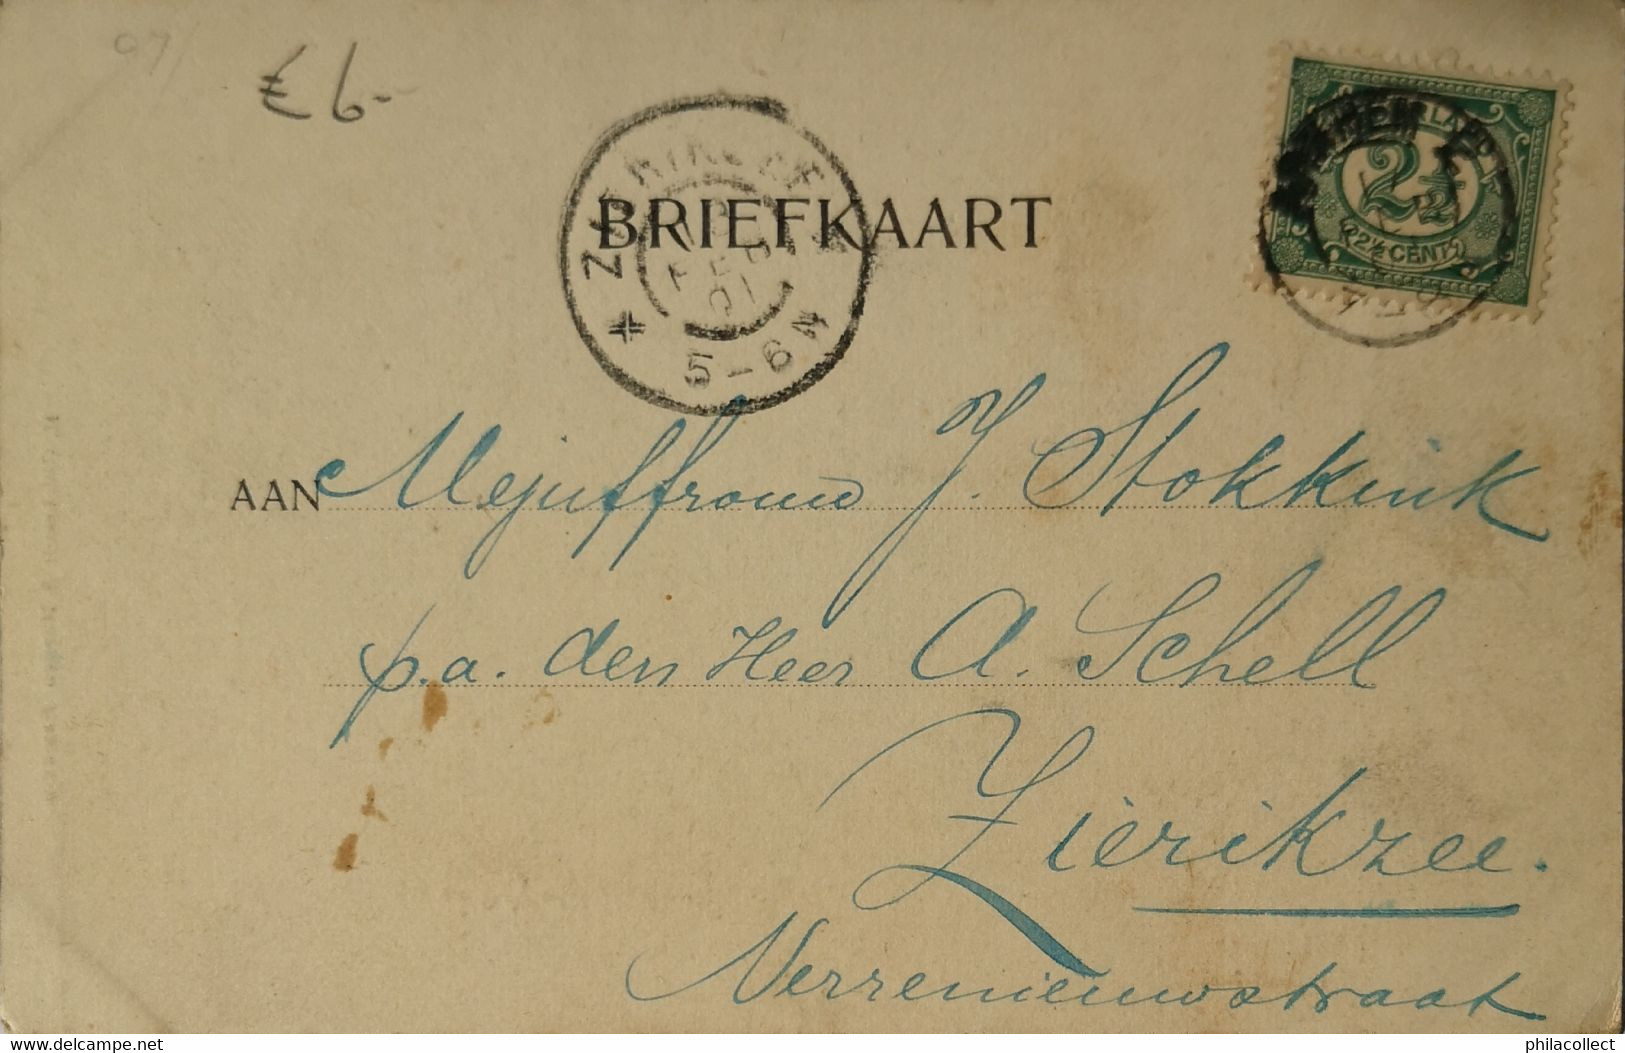 07/
€ 6-
ZIERIKZEE
FEB
01
5-6 N
BRIEFKAART
NEDERLAND
2½
2½ CENT
ARNHEM
AAN Mejuffrouw J. Stokkink
p.a. den Heer A. Schell
Zierikzee.
Verrenieuwstraat
www.delcampe.net
philacollect